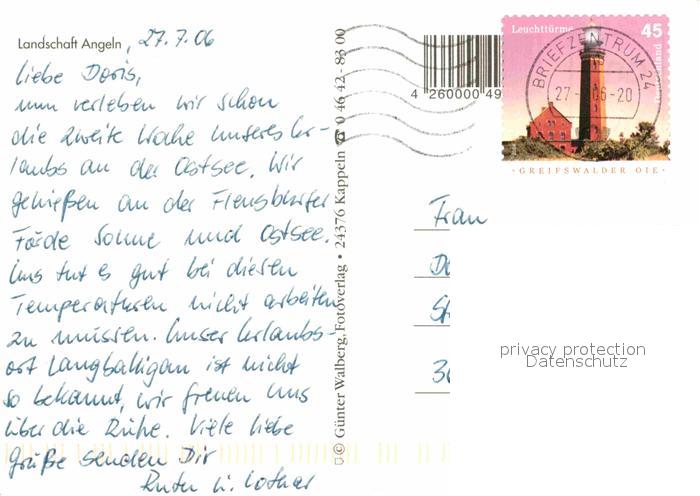 Landschaft Angeln, 27.7.06
Liebe Doris,
nun verleben wir schon
die zweite Woche unseres Ur-
laubs an der Ostsee. Wir
genießen an der Flensburger
Förde Sonne und Ostsee.
Uns tut es gut bei diesen
Temperaturen nicht arbeiten
zu müssen. Unser Urlaubs-
ort Langballigau ist nicht
so bekannt, wir freuen uns
über die Ruhe. Viele liebe
Grüße senden Dir
Ruth u. Lothar
© Günter Walberg, Fotoverlag • 24376 Kappeln ☎ 0 46 42 - 83 00
4 260000 49
Leuchttürme 45
Deutschland
GREIFSWALDER OIE
BRIEFZENTRUM 24
27. 06-20
Frau
Do
St
30
privacy protection
Datenschutz